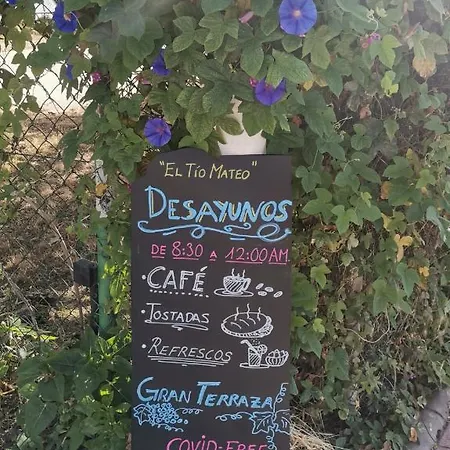 "El Tío Mateo"
DESAYUNOS
DE 8:30 A 12:00AM.
· CAFÉ
· TOSTADAS
· REFRESCOS
GRAN TERRAZA
COVID-FREE